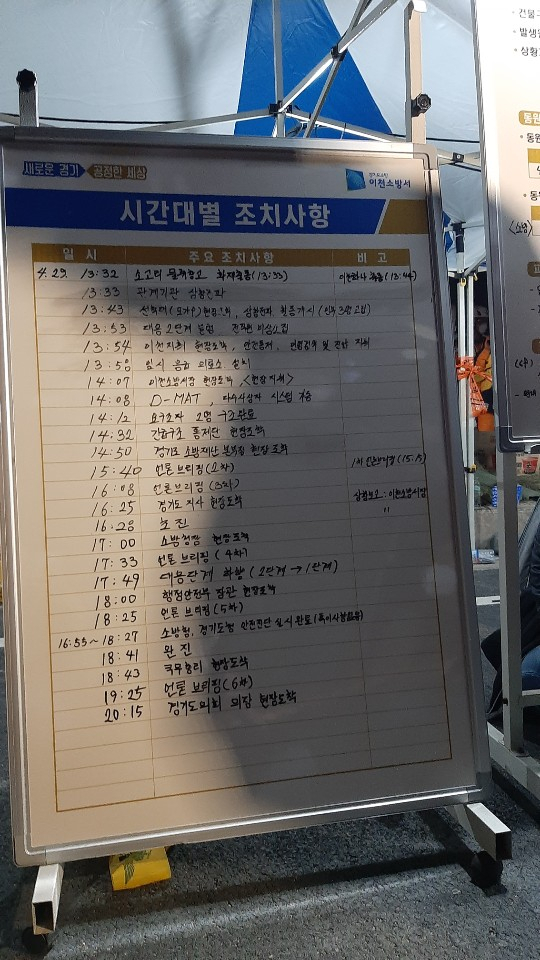 새로운 경기 공정한 세상
이천소방서
시간대별 조치사항
일 시 주요 조치사항 비 고
4. 29. 13:32 소고리 물류창고 화재출동(13:33) 이천화사 출동(13:44)
13:33 관계기관 상황전파
13:43 선착대 현장도착, 상황전파
13:53 대응2단계 발령 전직원 비상소집
13:54 이천지휘 현장도착, 안전통제, 현장 지휘
13:58 임시 응급 의료소 설치
14:07 이천소방서장 현장도착 <현장지휘>
14:08 D-MAT 다수사상자 시스템 가동
14:12 요구조자 2명 구조완료
14:32 긴급구조 통제단 현장도착
14:50 경기도 소방재난 본부장 현장 도착
15:40 언론 브리핑(2차) 1차 언론브리핑(15:15)
16:08 언론 브리핑(3차)
16:25 경기도지사 현장도착 상황보고 : 이천소방서장
16:28 초진 "
17:00 소방청장 현장도착
17:33 언론 브리핑(4차)
17:49 대응단계 하향(2단계→1단계)
18:00 행정안전부 장관 현장도착
18:25 언론 브리핑(5차)
16:55~18:27 소방청, 경기도청 안전진단 실시 완료(특이사항없음)
18:41 완진
18:43 국무총리 현장도착
19:25 언론 브리핑(6차)
20:15 경기도의회 의장 현장도착
건물
발생
상황
동원